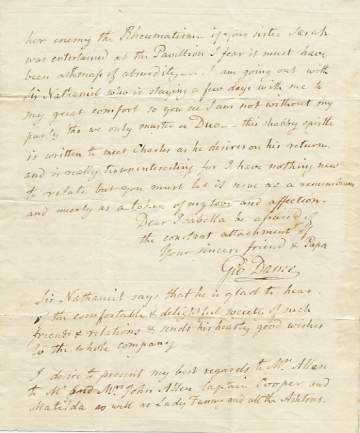 her enemy the Rheumatism if your sister Sarah
was entertained at the Pavillion I fear it must have
been a of absurdity — I am going out with
Sir Nathaniel who is staying a few days with me to
my great comfort so you see I am not without my
party tho we only muster a Duo — this shabby epistle
is written to meet Charles as he desires on his return,
and is really for I have nothing new
to relate but you must as a remembrance
and merely as a token of my love and affection —
Dear Isabella be assured of
the constant attachment of
Your sincere friend & Papa
Geo Dance,
Sir Nathaniel says that he is glad to hear
of the comfortable & delightful society of such
friends & relations & sends his hearty good wishes
to the whole company
I desire to present my best regards to Mrs Allen
to Mr and Mrs John Allen Captain Cooper and
Matilda as well as Lady and all the Ashtons.